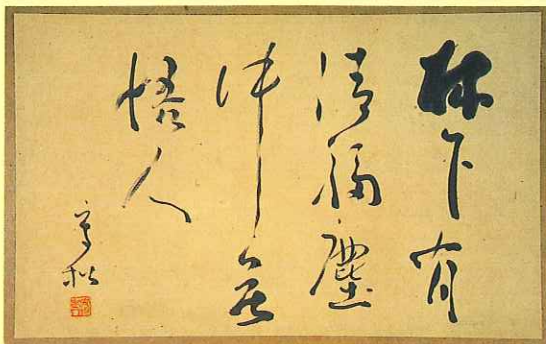 林下有
清福塵
中無
悟人